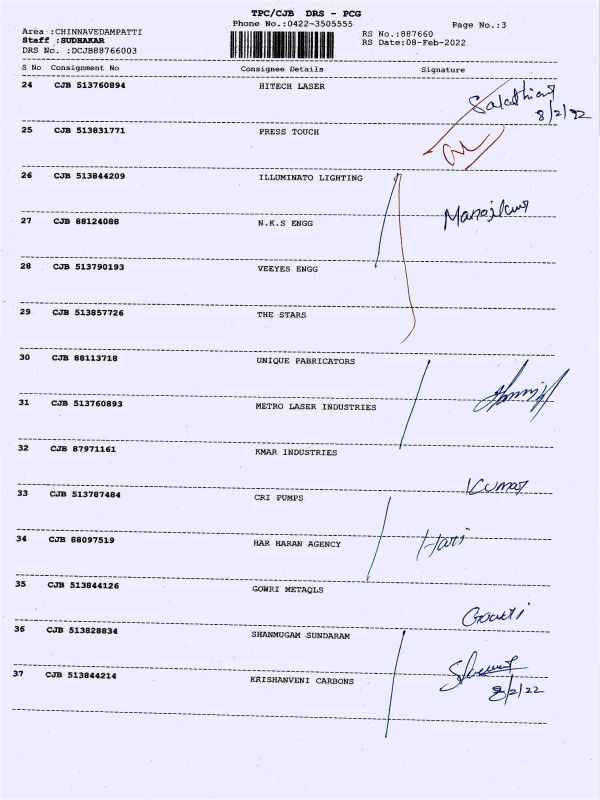 TPC/CJB DRS - PCG
Phone No.:0422-3505555
Page No.:3
Area :CHINNAVEDAMPATTI
Staff :SUDHAKAR
DRS No. :DCJB88766003
RS No.:887660
RS Date:08-Feb-2022
S No Consignment No Consignee Details Signature
24 CJB 513760894 HITECH LASER
8/2/22
25 CJB 513831771 PRESS TOUCH
26 CJB 513844209 ILLUMINATO LIGHTING
27 CJB 88124088 N.K.S ENGG
28 CJB 513790193 VEEYES ENGG
29 CJB 513857726 THE STARS
30 CJB 88113718 UNIQUE PABRICATORS
31 CJB 513760893 METRO LASER INDUSTRIES
32 CJB 87971161 KMAR INDUSTRIES
Kumar
33 CJB 513787484 CRI PUMPS
34 CJB 88097519 HAR HARAN AGENCY Hari
35 CJB 513844126 GOWRI METAQLS
36 CJB 513828834 SHANMUGAM SUNDARAM
37 CJB 513844214 KRISHANVENI CARBONS
8/2/22